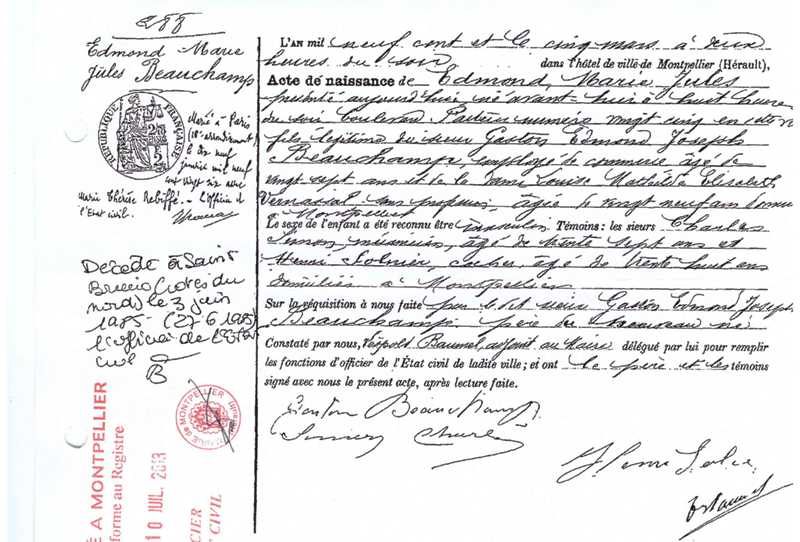 288
Edmond Marie
Jules Beauchamp
RÉPUBLIQUE FRANÇAISE
Marié à Paris
(18e arrondissement)
le dix neuf
janvier mil neuf
cent vingt six avec
Marie Thérèse Rebiffé. L'Officier de
l'Etat civil.
Décédé à Saint
Brieuc (Cotes du
nord) le 3 juin
1985 - (27 6 1985)
l'officier de l'Etat
civil
L'AN mil neuf cent et le cinq mars à deux
heures du soir dans l'hôtel de ville de Montpellier (Hérault),
Acte de naissance de Edmond, Marie, Jules
présenté aujourd'hui né avant-hier à huit heures
du soir boulevard numéro vingt cinq en cette
fils légitime du sieur Gaston Edmond Joseph
Beauchamp, employé de commerce âgé de
vingt sept ans et de la dame Louise Mathilde Elisabeth
Vernassal sans profession, âgée de vingt neuf ans
à Montpellier
Le sexe de l'enfant a été reconnu être masculin Témoins : les sieurs Charles
Simon, âgé de trente sept ans et
Henri Solnier, cocher âgé de trente huit ans
domiciliés à Montpellier
Sur la réquisition à nous faite par le dit sieur Gaston Edmond Joseph
Beauchamp père du nouveau né
Constaté par nous, Léopold Baumel adjoint au Maire délégué par lui pour remplir
les fonctions d'officier de l'État civil de ladite ville ; et ont le père et les témoins
signé avec nous le présent acte, après lecture faite.
Gaston Beauchamp
MONTPELLIER
É A MONTPELLIER
forme au Registre
10 JUIL. 2013
CIER
CIVIL